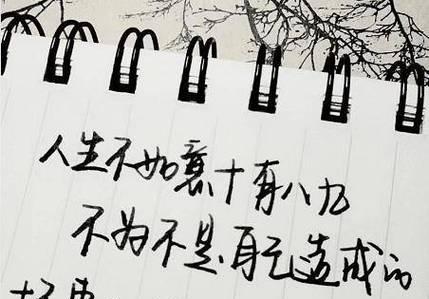 人生不如意十有八九
不为不是自己造成的